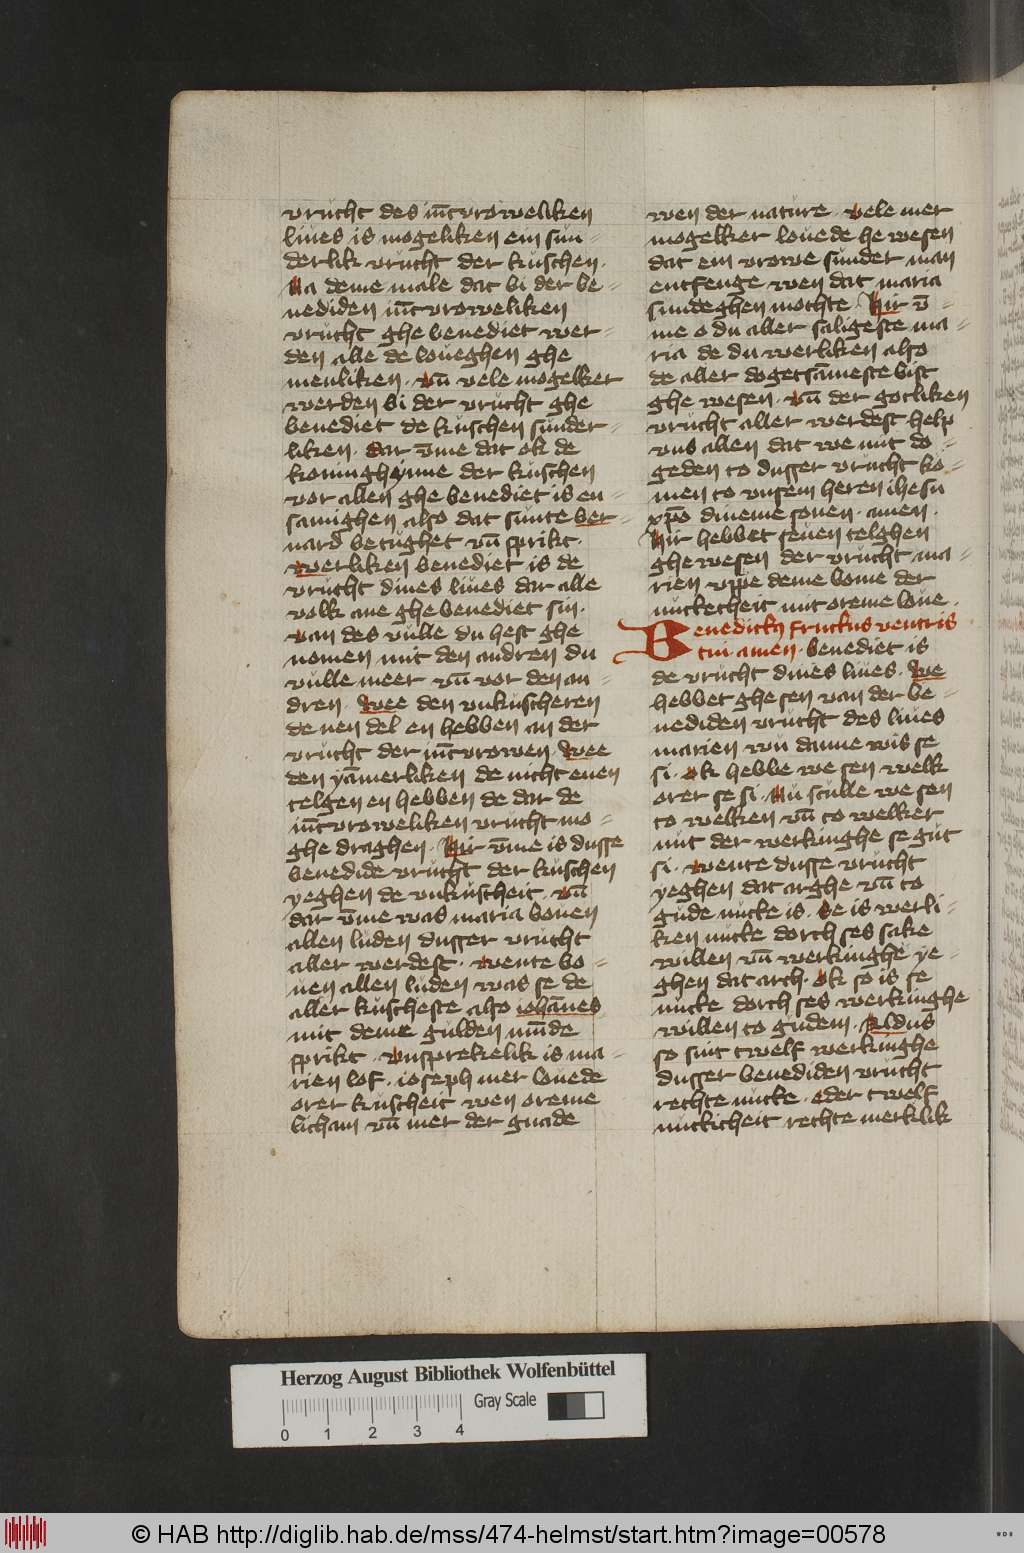 vrucht des iu̅cvroweliken
liues is mogeliken ein sun-
derlik vrucht der kuschen.
Na deme male dat bi der be-
nediden iu̅cvroweliken
vrucht ghe benediet wer-
den alle de loueghen ghe
menliken. vn̅ vele mogelker
werden bi der vrucht ghe
benediet de kuschen sunder-
liken. dar v̅me dat ok de
koninghynne der kuschen
vor allen ghe benediet is en-
samighen also dat sunte ber-
nard betughet vn̅ sprikt.
werliken benediet is de
vrucht dines liues dar alle
volk ane ghe benediet sin.
van des vulle du hest ghe
nomen mit den andren du
vulle meer vn̅ vor den an-
dren. wee den vnkuscheren
de nen del en hebben an der
vrucht der iu̅cvrowen. wee
den ya̅merliken de nicht enen
telgen en hebben de dar de
iu̅cvroweliken vrucht mo-
ghe draghen. hir v̅me is dusse
benedide vrucht der kuschen
yeghen de vnkuscheit. vn̅
dar v̅me was maria bouen
allen luden dusser vrucht
aller werdest. wente bo-
uen allen luden was se de
aller kuscheste also ioha̅nes
mit deme gulden mu̅de
sprikt. vnsprekelik is ma-
rien lof. ioseph mer louede
orer kuscheit wen oreme
licham vn̅ mer der gnade
wen der nature. vele mer
mogelker louede he wesen
dat ein vrowe sunder man
entfenge wen dat maria
sundeghen mochte. hir v̅-
me o du aller saligeste ma-
ria de du werliken also
de aller dogetsa̅meste bist
ghe wesen. vn̅ der gotliken
vrucht aller werdest help
vns allen dat we mit do-
geden to dusser vrucht ko-
men to vnsem heren ihesu
xpo̅ dineme sonen. amen.
Hir hebbet seuen telghen
ghe wesen der vrucht ma-
rien vppe deme bome der
nuttecheit mit oreme loue.
Benedictus fructus ventris
tui amen. benediet is
de vrucht dines liues. we
hebbet ghe sen van der be-
nediden vrucht des liues
marien wu danne wis se
si. ok hebbe we sen welk
orer se si. Nu sculle we sen
to welken vn̅ to welker
nut der werkinghe se gut
si. wente dusse vrucht
yeghen dat arghe vn̅ to
gude nutte is. Se is werli-
ken nutte dorch ses sake
willen vn̅ werkinghe ye-
ghen dat arch. ok so is se
nutte dorch ses werkinghe
willen to gudem. Aldus
so sint twelf werkinghe
dusser benediden vrucht
rechte nutte. oder twelf
nutticheit rechte merklik
Herzog August Bibliothek Wolfenbüttel
Gray Scale
0 1 2 3 4
© HAB http://diglib.hab.de/mss/474-helmst/start.htm?image=00578